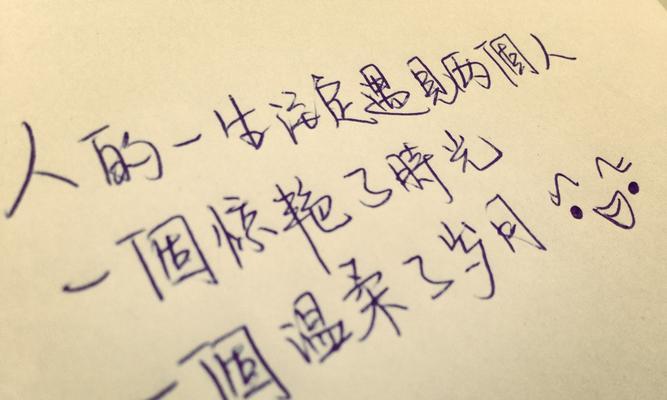 人的一生注定遇見两個人
一個惊艳了時光
一個温柔了岁月